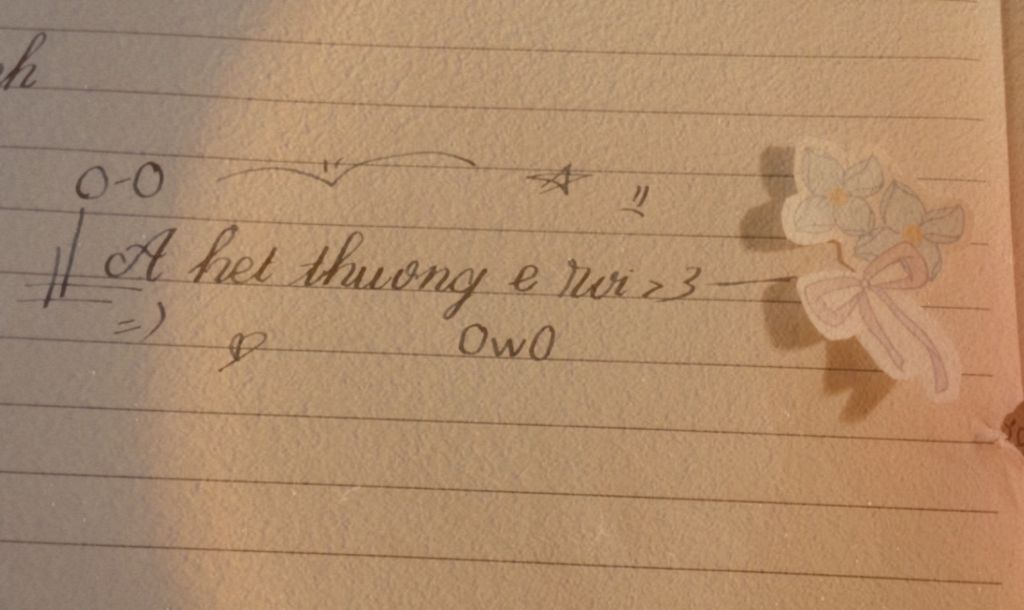 h
O-O
"
"
A het thuong e rưi >3
=)
OwO